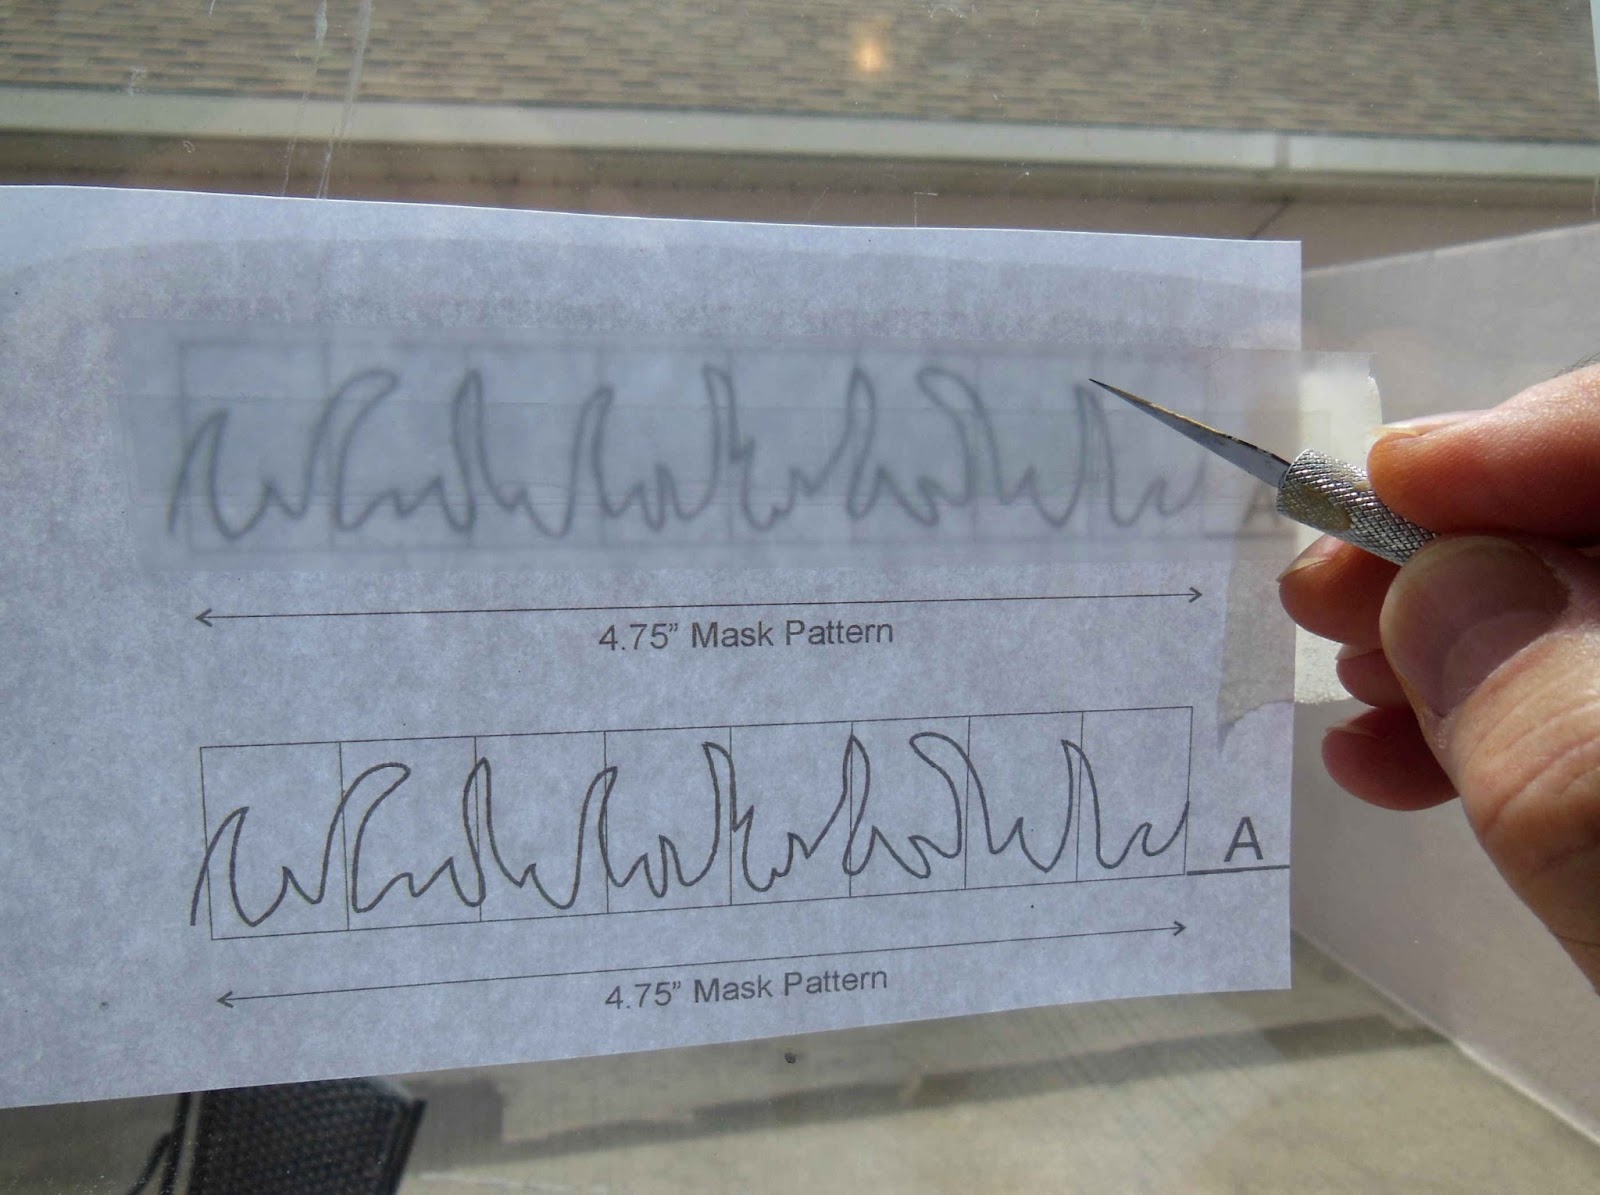 A
4.75” Mask Pattern
A
4.75” Mask Pattern